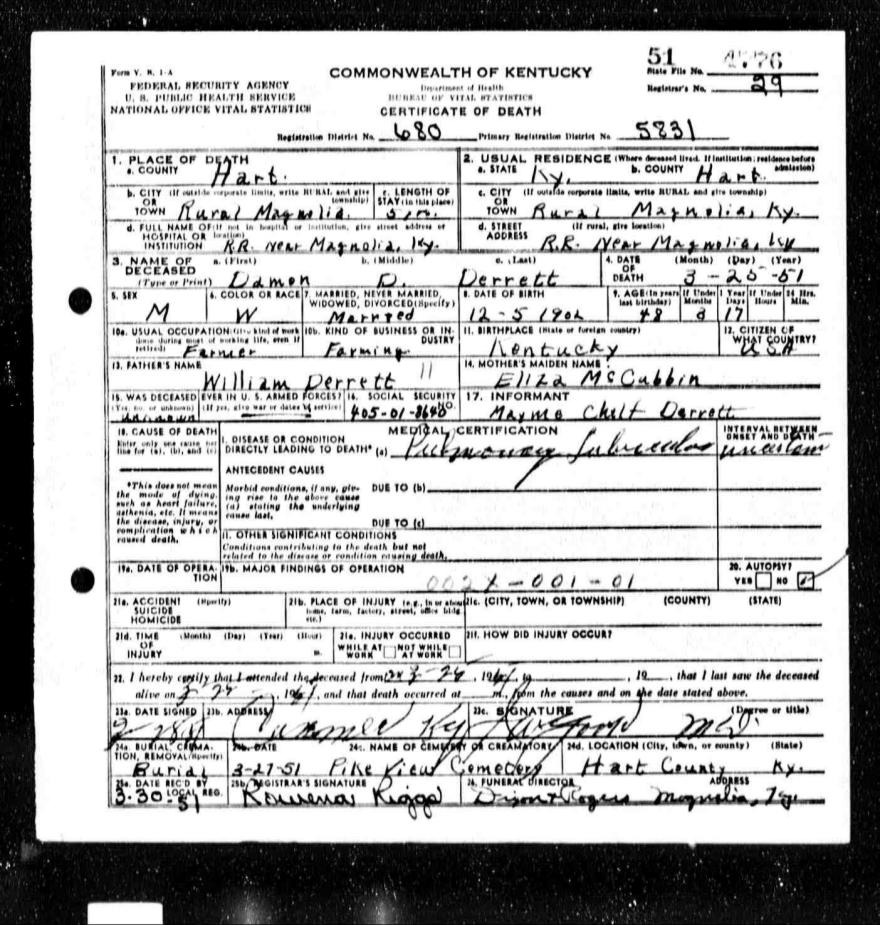 51 4776
State File No.
Form V. S. 1-A
COMMONWEALTH OF KENTUCKY
Registrar's No. 29
FEDERAL SECURITY AGENCY
Department of Health
U. S. PUBLIC HEALTH SERVICE
BUREAU OF VITAL STATISTICS
NATIONAL OFFICE VITAL STATISTICS
CERTIFICATE OF DEATH
Registration District No. 680 Primary Registration District No. 5831
1. PLACE OF DEATH
a. COUNTY Hart.
2. USUAL RESIDENCE (Where deceased lived. If institution; residence before admission)
a. STATE Ky. b. COUNTY Hart.
b. CITY OR TOWN (If outside corporate limits, write RURAL and give township) Rural Magnolia.
c. LENGTH OF STAY (in this place)
c. CITY OR TOWN (If outside corporate limits, write RURAL and give township) Rural Magnolia, Ky.
d. FULL NAME OF HOSPITAL OR INSTITUTION (If not in hospital or institution, give street address or location) R.R. Near Magnolia, Ky.
d. STREET ADDRESS (If rural, give location) R.R. Near Magnolia, Ky
3. NAME OF DECEASED (Type or Print) a. (First) b. (Middle) c. (Last)
Damon D. Derrett
4. DATE OF DEATH (Month) (Day) (Year)
3-25-51
5. SEX M
6. COLOR OR RACE W
7. MARRIED, NEVER MARRIED, WIDOWED, DIVORCED (Specify) Married
8. DATE OF BIRTH 12-5-1902
9. AGE (In years last birthday) 48 If Under 1 Year Months 3 Days 17 If Under 24 Hrs. Hours Min.
10a. USUAL OCCUPATION (Give kind of work done during most of working life, even if retired) Farmer
10b. KIND OF BUSINESS OR INDUSTRY Farming
11. BIRTHPLACE (State or foreign country) Kentucky
12. CITIZEN OF WHAT COUNTRY? USA
13. FATHER'S NAME William Derrett 11
14. MOTHER'S MAIDEN NAME Eliza McCubbin
15. WAS DECEASED EVER IN U. S. ARMED FORCES? (Yes, no, or unknown) (If yes, give war or dates of service) Unknown
16. SOCIAL SECURITY NO. 405-01-8640
17. INFORMANT Mayme Chelt Derrett
18. CAUSE OF DEATH
Enter only one cause per line for (a), (b), and (c)
MEDICAL CERTIFICATION
INTERVAL BETWEEN ONSET AND DEATH
I. DISEASE OR CONDITION DIRECTLY LEADING TO DEATH* (a) Pulmonary Tuberculos uncertain
ANTECEDENT CAUSES
*This does not mean the mode of dying, such as heart failure, asthenia, etc. It means the disease, injury, or complication which caused death.
Morbid conditions, if any, giving rise to the above cause (a) stating the underlying cause last.
DUE TO (b)
DUE TO (c)
II. OTHER SIGNIFICANT CONDITIONS
Conditions contributing to the death but not related to the disease or condition causing death.
19a. DATE OF OPERATION
19b. MAJOR FINDINGS OF OPERATION
002X-001-01
20. AUTOPSY? YES NO
21a. ACCIDENT SUICIDE HOMICIDE (Specify)
21b. PLACE OF INJURY (e.g., in or about home, farm, factory, street, office bldg., etc.)
21c. (CITY, TOWN, OR TOWNSHIP) (COUNTY) (STATE)
21d. TIME OF INJURY (Month) (Day) (Year) (Hour) m.
21e. INJURY OCCURRED WHILE AT WORK NOT WHILE AT WORK
21f. HOW DID INJURY OCCUR?
22. I hereby certify that I attended the deceased from , 19 , to , 19 , that I last saw the deceased
alive on , 19 , and that death occurred at m., from the causes and on the date stated above.
23a. DATE SIGNED
23b. ADDRESS Ky
23c. SIGNATURE (Degree or title) MD.
24a. BURIAL, CREMATION, REMOVAL (Specify) Burial
24b. DATE 3-27-51
24c. NAME OF CEMETERY OR CREAMATORY Pike View Cemetery
24d. LOCATION (City, town, or county) (State) Hart County Ky.
25a. DATE REC'D BY LOCAL REG. 3-30-51
25b. REGISTRAR'S SIGNATURE Rowena Riggs
26. FUNERAL DIRECTOR ADDRESS
Dixon & Rogers Magnolia, Ky.